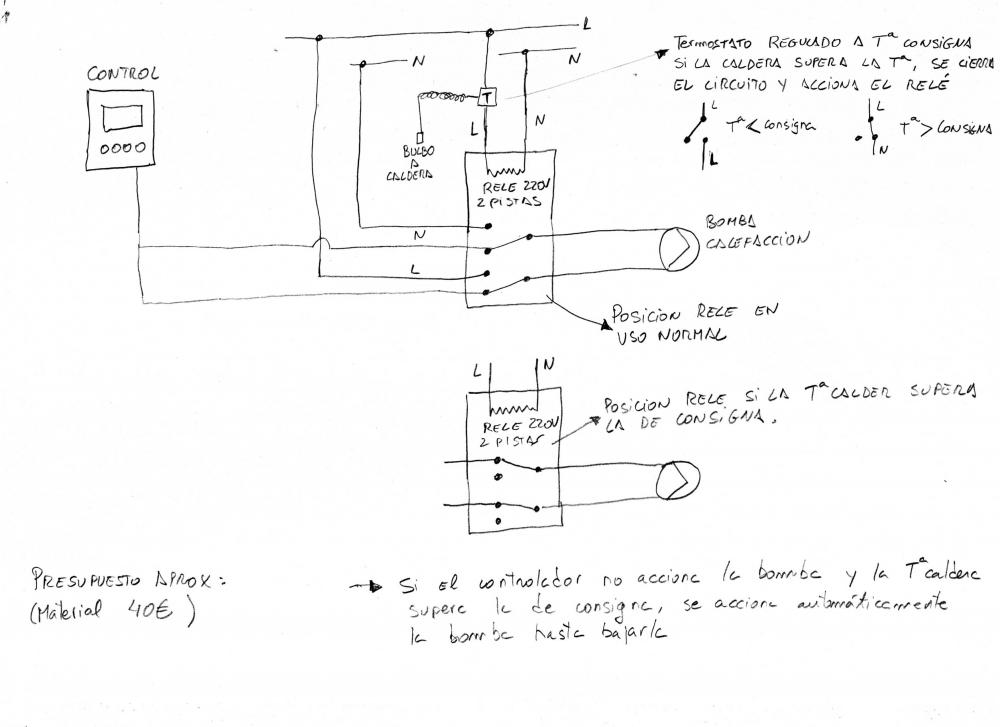 CONTROL
L
N
N
T
L
N
BULBO
A
CALDERA
TERMOSTATO REGULADO A Tª CONSIGNA
SI LA CALDERA SUPERA LA Tª, SE CIERRA
EL CIRCUITO Y ACCIONA EL RELÉ
L
Tª < consigna
L
L
Tª > CONSIGNA
N
RELE 220V
2 PISTAS
N
L
BOMBA
CALEFACCION
POSICION RELE EN
USO NORMAL
L
N
RELE 220V
2 PISTAS
POSICION RELE SI LA Tª CALDER SUPERA
LA DE CONSIGNA.
PRESUPUESTO APROX:
(Material 40€)
→ Si el controlador no acciona la bomba y la Tª caldera
supera la de consigna, se acciona automáticamente
la bomba hasta bajarla